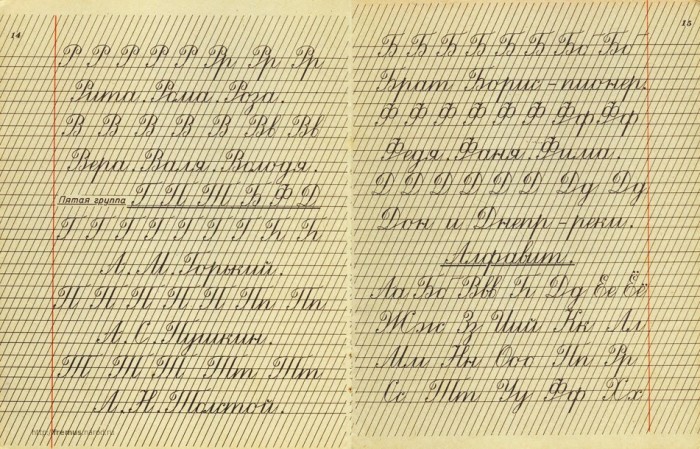 14
Р Р Р Р Р Р Рр Рр Рр
Рита. Рома. Роза.
В В В В В В Вв Вв
Вера. Валя. Володя.
Пятая группа Г П Т Б Ф Д
Г Г Г Г Г Г Г Гг Гг
А. М. Горький.
П П П П П П Пп Пп
А. С. Пушкин.
Т Т Т Т Тт Тт
Л. Н. Толстой.
http://fremus.narod.ru
15
Б Б Б Б Б Б Бб Бб
Брат Борис - пионер.
Ф Ф Ф Ф Ф Ф Фф Фф
Федя. Фаня. Фима.
Д Д Д Д Д Д Дд Дд
Дон и Днепр - реки.
Алфавит.
Аа Бб Вв Гг Дд Ее Ёё
Жж Зз Ии й Кк Лл
Мм Нн Оо Пп Рр
Сс Тт Уу Фф Хх